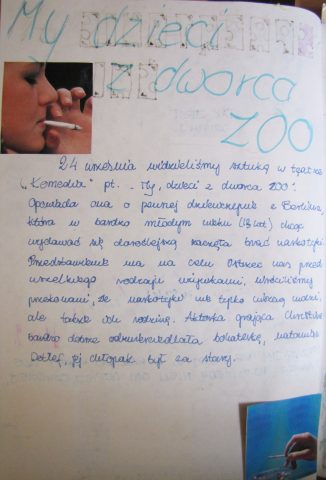 My dzieci
z dworca
ZOO
24 września widzieliśmy sztukę w teatrze
„Komedia" pt. „My, dzieci z dworca ZOO".
Opowiada ona o pewnej dziewczynie z Berlina,
która w bardzo młodym wieku (13 lat) chcąc
wydawać się doroślejszą zaczęła brać narkotyki.
Przedstawienie ma na celu ostrzec nas przed
wszelkiego rodzaju używkami, wróciliśmy
przekonani, że narkotyki nie tylko niszczą ludzi,
ale także ich rodzinę. Aktorka grająca Christine
bardzo dobrze odzwierciedlała bohaterkę, natomiast
Detlef, jej chłopak był za stary.